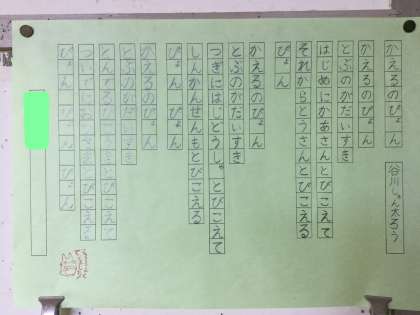 かえるのぴょん　谷川しゅん太ろう
かえるのぴょん
とぶのがだいすき
はじめにかあさんとびこえて
それからとうさんとびこえる
ぴょん
かえるのぴょん
とぶのがだいすき
つぎにはじどうしゃとびこえて
しんかんせんもとびこえる
ぴょん　ぴょん
かえるのぴょん
とぶのがだいすき
とんでるひこうきとびこえて
ついでにおひさまとびこえる
ぴょん　ぴょん　ぴょん